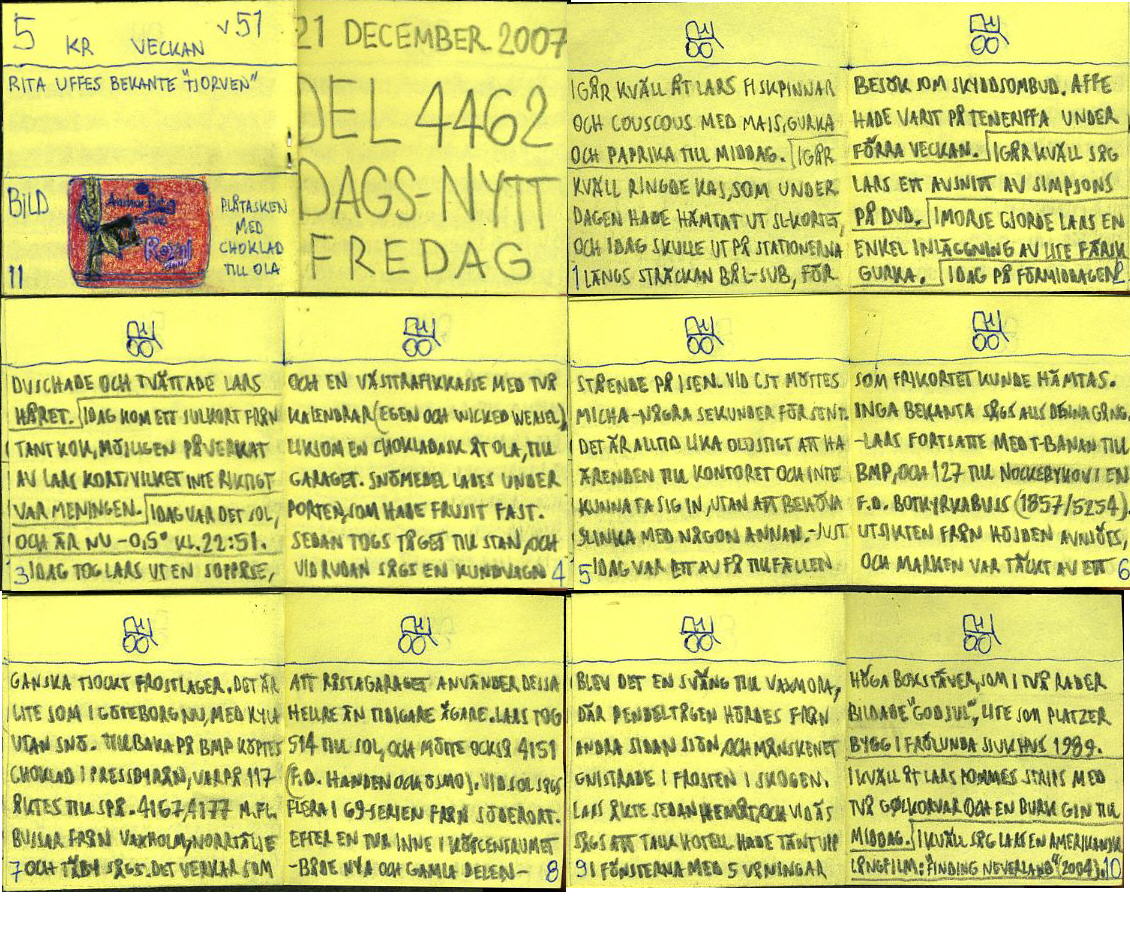 5 KR VECKAN V51
RITA UFFES BEKANTE "TJORVEN"
BILD
11
Aladdin
Royal
PLÅTASKEN
MED
CHOKLAD
TILL OLA
21 DECEMBER 2007
DEL 4462
DAGS-NYTT
FREDAG
IGÅR KVÄLL ÅT LARS FISKPINNAR
OCH COUSCOUS MED MAJS, GURKA
OCH PAPRIKA TILL MIDDAG. IGÅR
KVÄLL RINGDE KAJ, SOM UNDER
DAGEN HADE HÄMTAT UT SL-KORTET,
OCH IDAG SKULLE UT PÅ STATIONERNA
1 LÄNGS STRÄCKAN BÅL-SUB, FÖR
BESÖK SOM SKYDDSOMBUD. AFFE
HADE VARIT PÅ TENERIFFA UNDER
FÖRRA VECKAN. IGÅR KVÄLL SÅG
LARS ETT AVSNITT AV SIMPSONS
PÅ DVD. IMORSE GJORDE LARS EN
ENKEL INLÄGGNING AV LITE FÄRSK
GURKA. IDAG PÅ FÖRMIDDAGEN 2
DUSCHADE OCH TVÄTTADE LARS
HÅRET. IDAG KOM ETT JULKORT FRÅN
TANT KOK, MÖJLIGEN PÅVERKAT
AV LARS KORT, VILKET INTE RIKTIGT
VAR MENINGEN. IDAG VAR DET SOL,
OCH ÄR NU -0,5° KL. 22:51.
3 IDAG TOG LARS UT EN SOPPÅSE,
OCH EN VÄSTTRAFIKKASSE MED TVÅ
KALENDRAR (EGEN OCH WICKED WEASEL),
LIKSOM EN CHOKLADASK ÅT OLA, TILL
GARAGET. SNÖMEDEL LADES UNDER
PORTEN, SOM HADE FRUSIT FAST.
SEDAN TOGS TÅGET TILL STAN, OCH
VID RUDAN SÅGS EN KUNDVAGN 4
STÅENDE PÅ ISEN. VID CST MÖTTES
MICHA - NÅGRA SEKUNDER FÖR SENT.
DET ÄR ALLTID LIKA OLUSTIGT ATT HA
ÄRENDEN TILL KONTORET OCH INTE
KUNNA TA SIG IN, UTAN ATT BEHÖVA
SLINKA MED NÅGON ANNAN. - JUST
5 IDAG VAR ETT AV FÅ TILLFÄLLEN
SOM FRIKORTET KUNDE HÄMTAS.
INGA BEKANTA SÅGS ALLS DENNA GÅNG.
-LARS FORTSATTE MED T-BANAN TILL
BMP, OCH 127 TILL NOCKEBYHOV I EN
F.D. BOTKYRKABUSS (1857/5254).
UTSIKTEN FRÅN HÖJDEN AVNJÖTS,
OCH MARKEN VAR TÄCKT AV ETT 6
GANSKA TJOCKT FROSTLAGER. DET ÄR
LITE SOM I GÖTEBORG NU, MED KYLA
UTAN SNÖ. TILLBAKA PÅ BMP KÖPTES
CHOKLAD I PRESSBYRÅN, VARPÅ 117
ÅKTES TILL SPÅ. 4167, 4177 M.FL.
BUSSAR FRÅN VAXHOLM, NORRTÄLJE
7 OCH TÄBY SÅGS. DET VERKAR SOM
ATT RÅSTAGARAGET ANVÄNDER DESSA
HELLRE ÄN TIDIGARE ÄGARE. LARS TOG
514 TILL SOL, OCH MÖTTE OCKSÅ 4151
(F.D. HANDEN OCH ÖSMO). VID SOL SÅGS
FLERA I 69-SERIEN FRÅN SÖDERORT.
EFTER EN TUR INNE I KÖPCENTRUMET
-BÅDE NYA OCH GAMLA DELEN- 8
BLEV DET EN SVÄNG TILL VAXMORA,
DÄR PENDELTÅGEN HÖRDES FRÅN
ANDRA SIDAN SJÖN, OCH MÅNSKENET
GNISTRADE I FROSTEN I SKOGEN.
LARS ÅKTE SEDAN HEMÅT, OCH VID ÄS
SÅGS ATT TALK HOTELL HADE TÄNT UPP
9 I FÖNSTERNA MED 5 VÅNINGAR
HÖGA BOKSTÄVER, SOM I TVÅ RADER
BILDADE "GOD JUL", LITE SOM PLATZER
BYGG I FRÖLUNDA SJUKHUS 1989.
IKVÄLL ÅT LARS POMMES STRIPS MED
TVÅ GØLKORVAR OCH EN BURK GIN TILL
MIDDAG. IKVÄLL SÅG LARS EN AMERIKANSK
LÅNGFILM: "FINDING NEVERLAND" (2004). 10